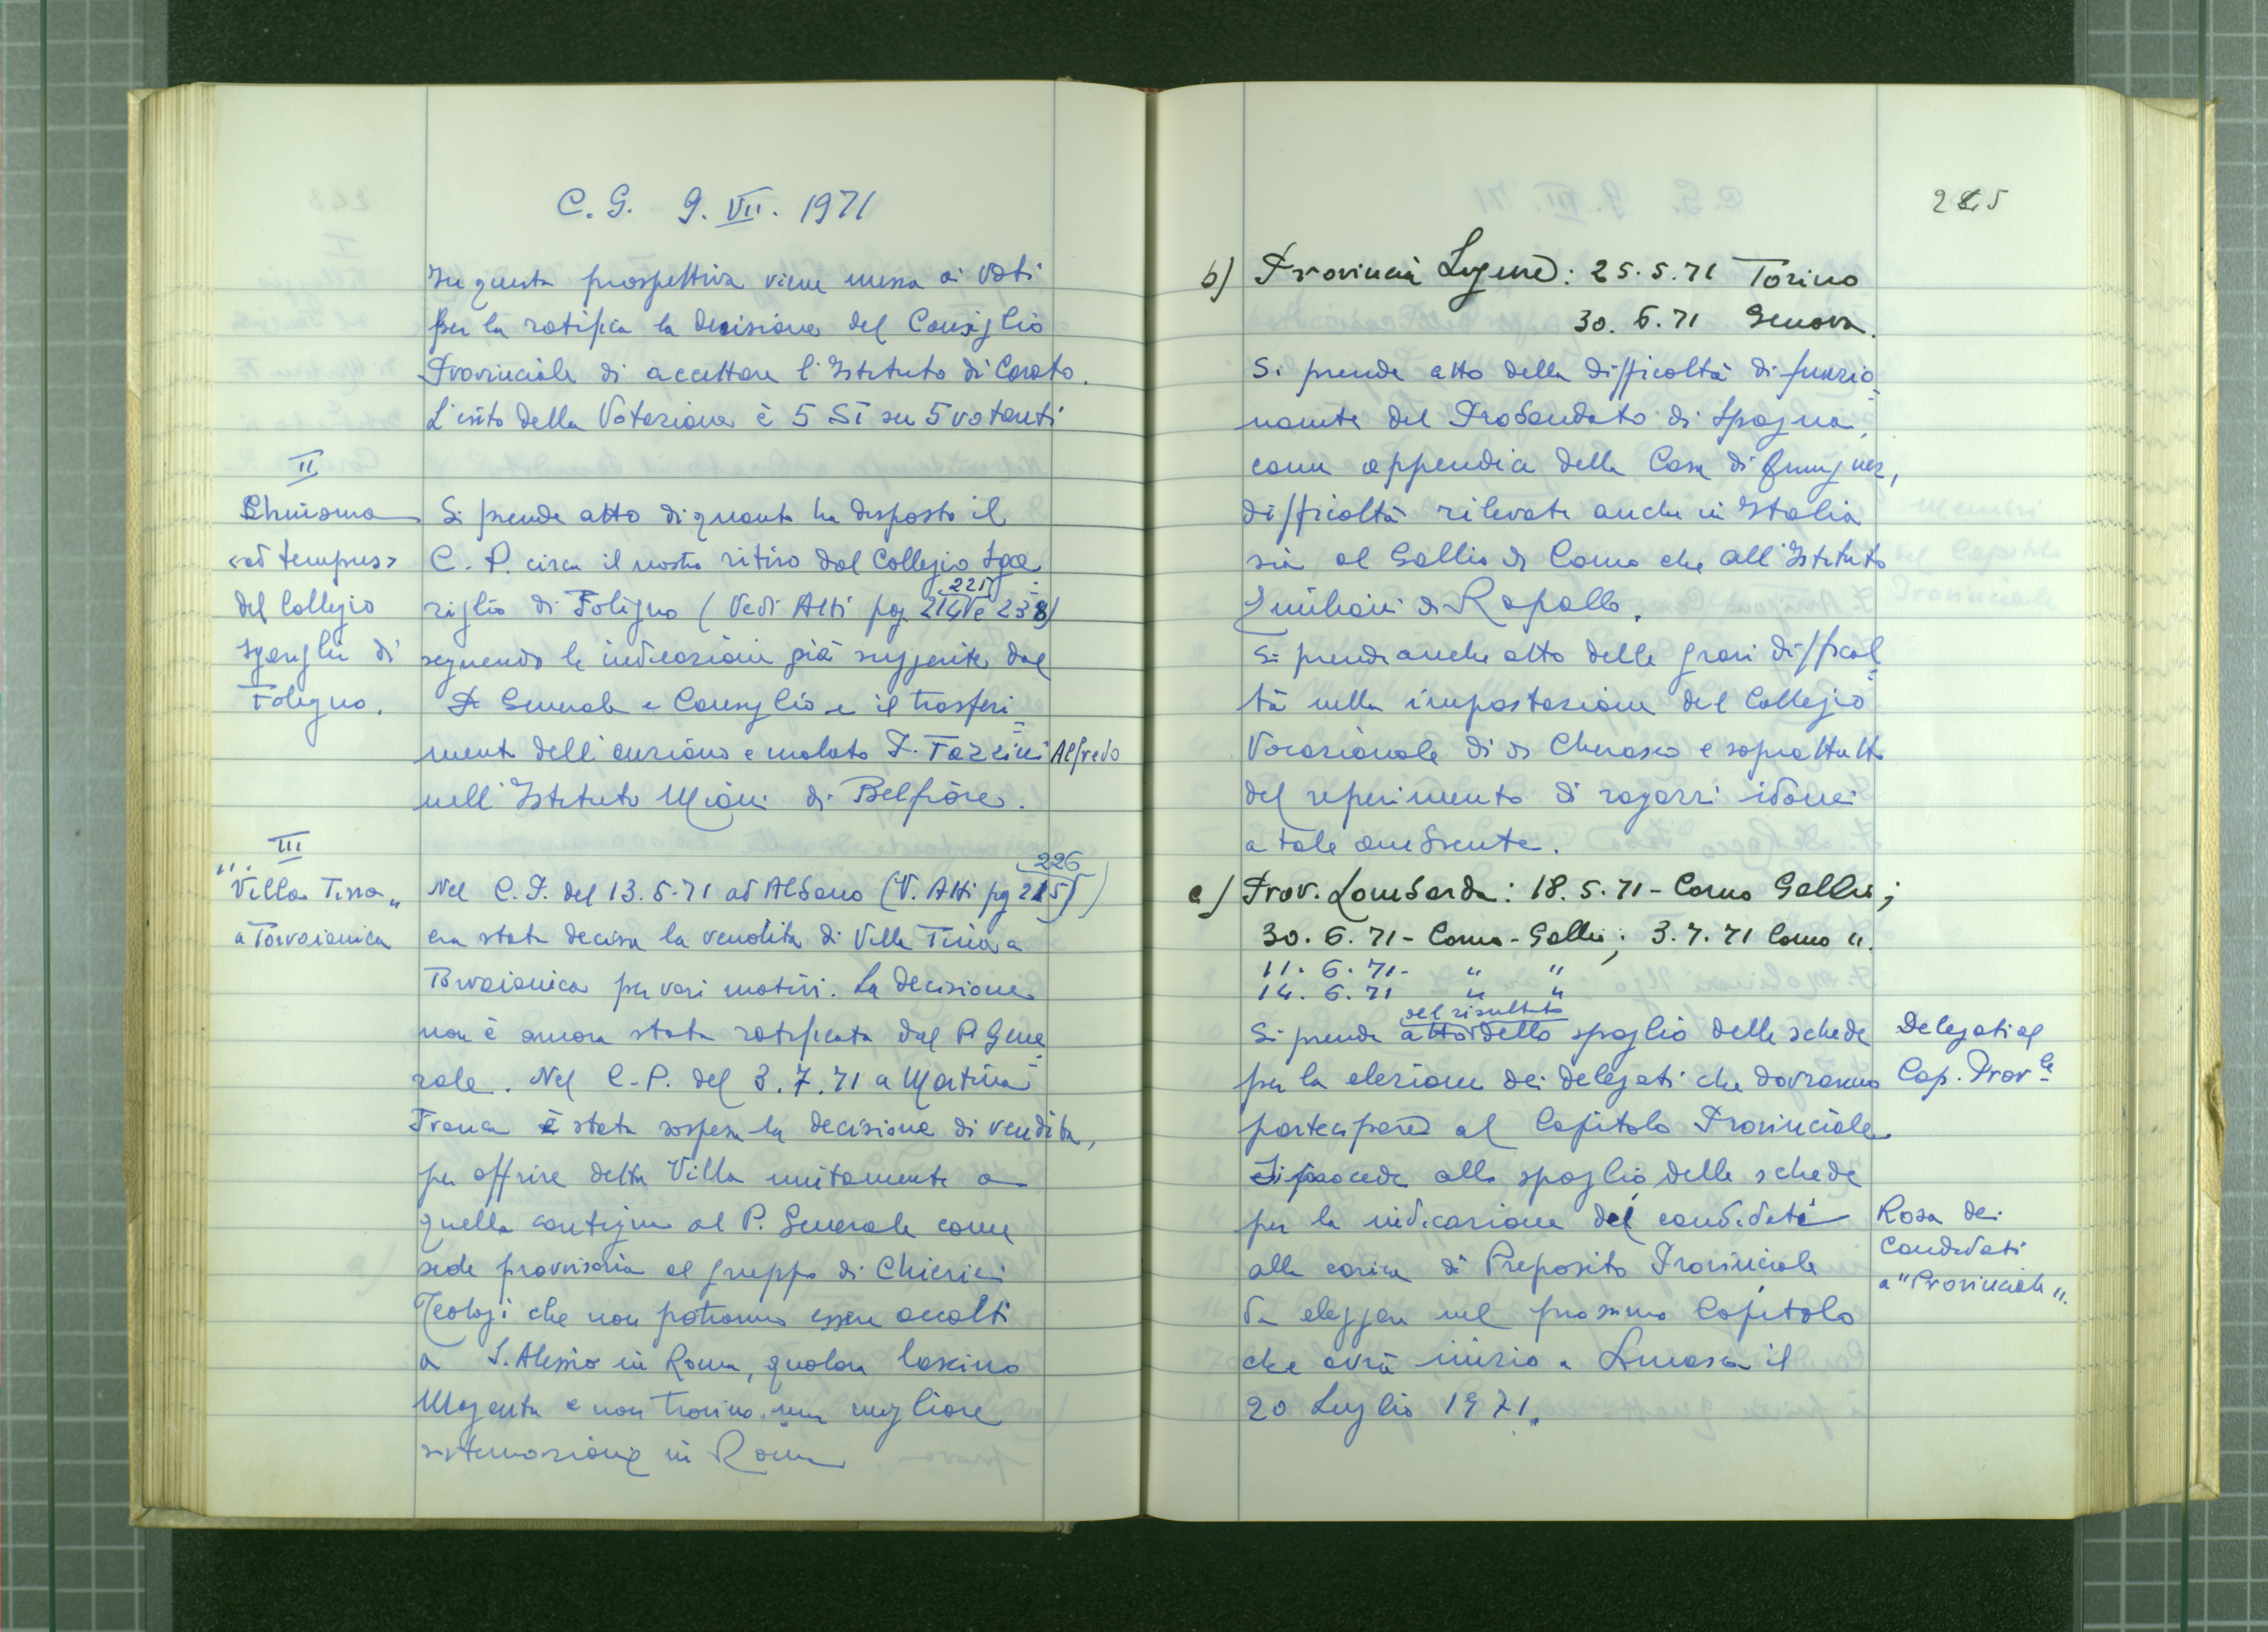 C. G. 9. VII. 1971
In questa prospettiva viene messa ai voti
per la ratifica la decisione del Consiglio
Provinciale di accettare l'Istituto di Corato.
L'esito della Votazione è 5 Sì su 5 votanti
II
Chiusura
<ad tempus>
del Collegio
Sgariglia di
Foligno.
Si prende atto di quanto ha disposto il
C. P. circa il nostro ritiro dal Collegio Sga=
riglia di Foligno (Vedi Atti pag. 214 225 e 238)
seguendo le indicazioni già suggerite dal
P. Generale e Consiglio e il trasferi=
mento dell'anziano e malato P. Fazzini Alfredo
nell'Istituto Miani di Belfiore.
III
"Villa Tina"
a Torvaianica
Nel C. P. del 13.5.71 ad Albano (V. Atti pg 215 226)
era stata decisa la vendita di Villa Tina a
Torvaianica per vari motivi. La decisione
non è ancora stata ratificata dal P. Gene=
rale. Nel C.P. del 3.7.71 a Martina
Franca è stata sospesa la decisione di vendita,
per offrire detta Villa unitamente a
quella contigua al P. Generale come
sede provvisoria al gruppo di Chierici
Teologi che non potranno essere accolti
a S. Alessio in Roma, qualora lascino
Magenta e non trovino una migliore
sistemazione in Roma
b) Provincia Ligure: 25.5.71 Torino
30. 6.71 Genova.
Si prende atto della difficoltà di funzio=
namento del Probandato di Spagna,
come appendice della Casa di
difficoltà rilevate anche in Italia
sia al Gallio di Como che all'Istituto
Emiliani di Rapallo.
Si prende anche atto delle gravi diffical=
tà nella impostazione del Collegio
Vocazionale di di Cherasco e soprattutto
del reperimento di ragazzi idonei
a tale ambiente.
c) Prov. Lombarda: 18.5.71 - Como Gallio;
30. 6. 71 - Como - Gallio; 3.7.71 Como ".
11. 6. 71 - " "
14. 6. 71 " "
Si prende atto del risultato dello spoglio delle schede
per la elezione dei delegati che dovranno
partecipare al Capitolo Provinciale
Delegati al
Cap. Prov.le
Si procede allo spoglio delle schede
per la indicazione dei candidati
alla carica di Preposito Provinciale
da eleggere nel prossimo Capitolo
che avrà inizio a Somasca il
20 Luglio 1971.
Rosa dei
Candidati
a "Provinciale".